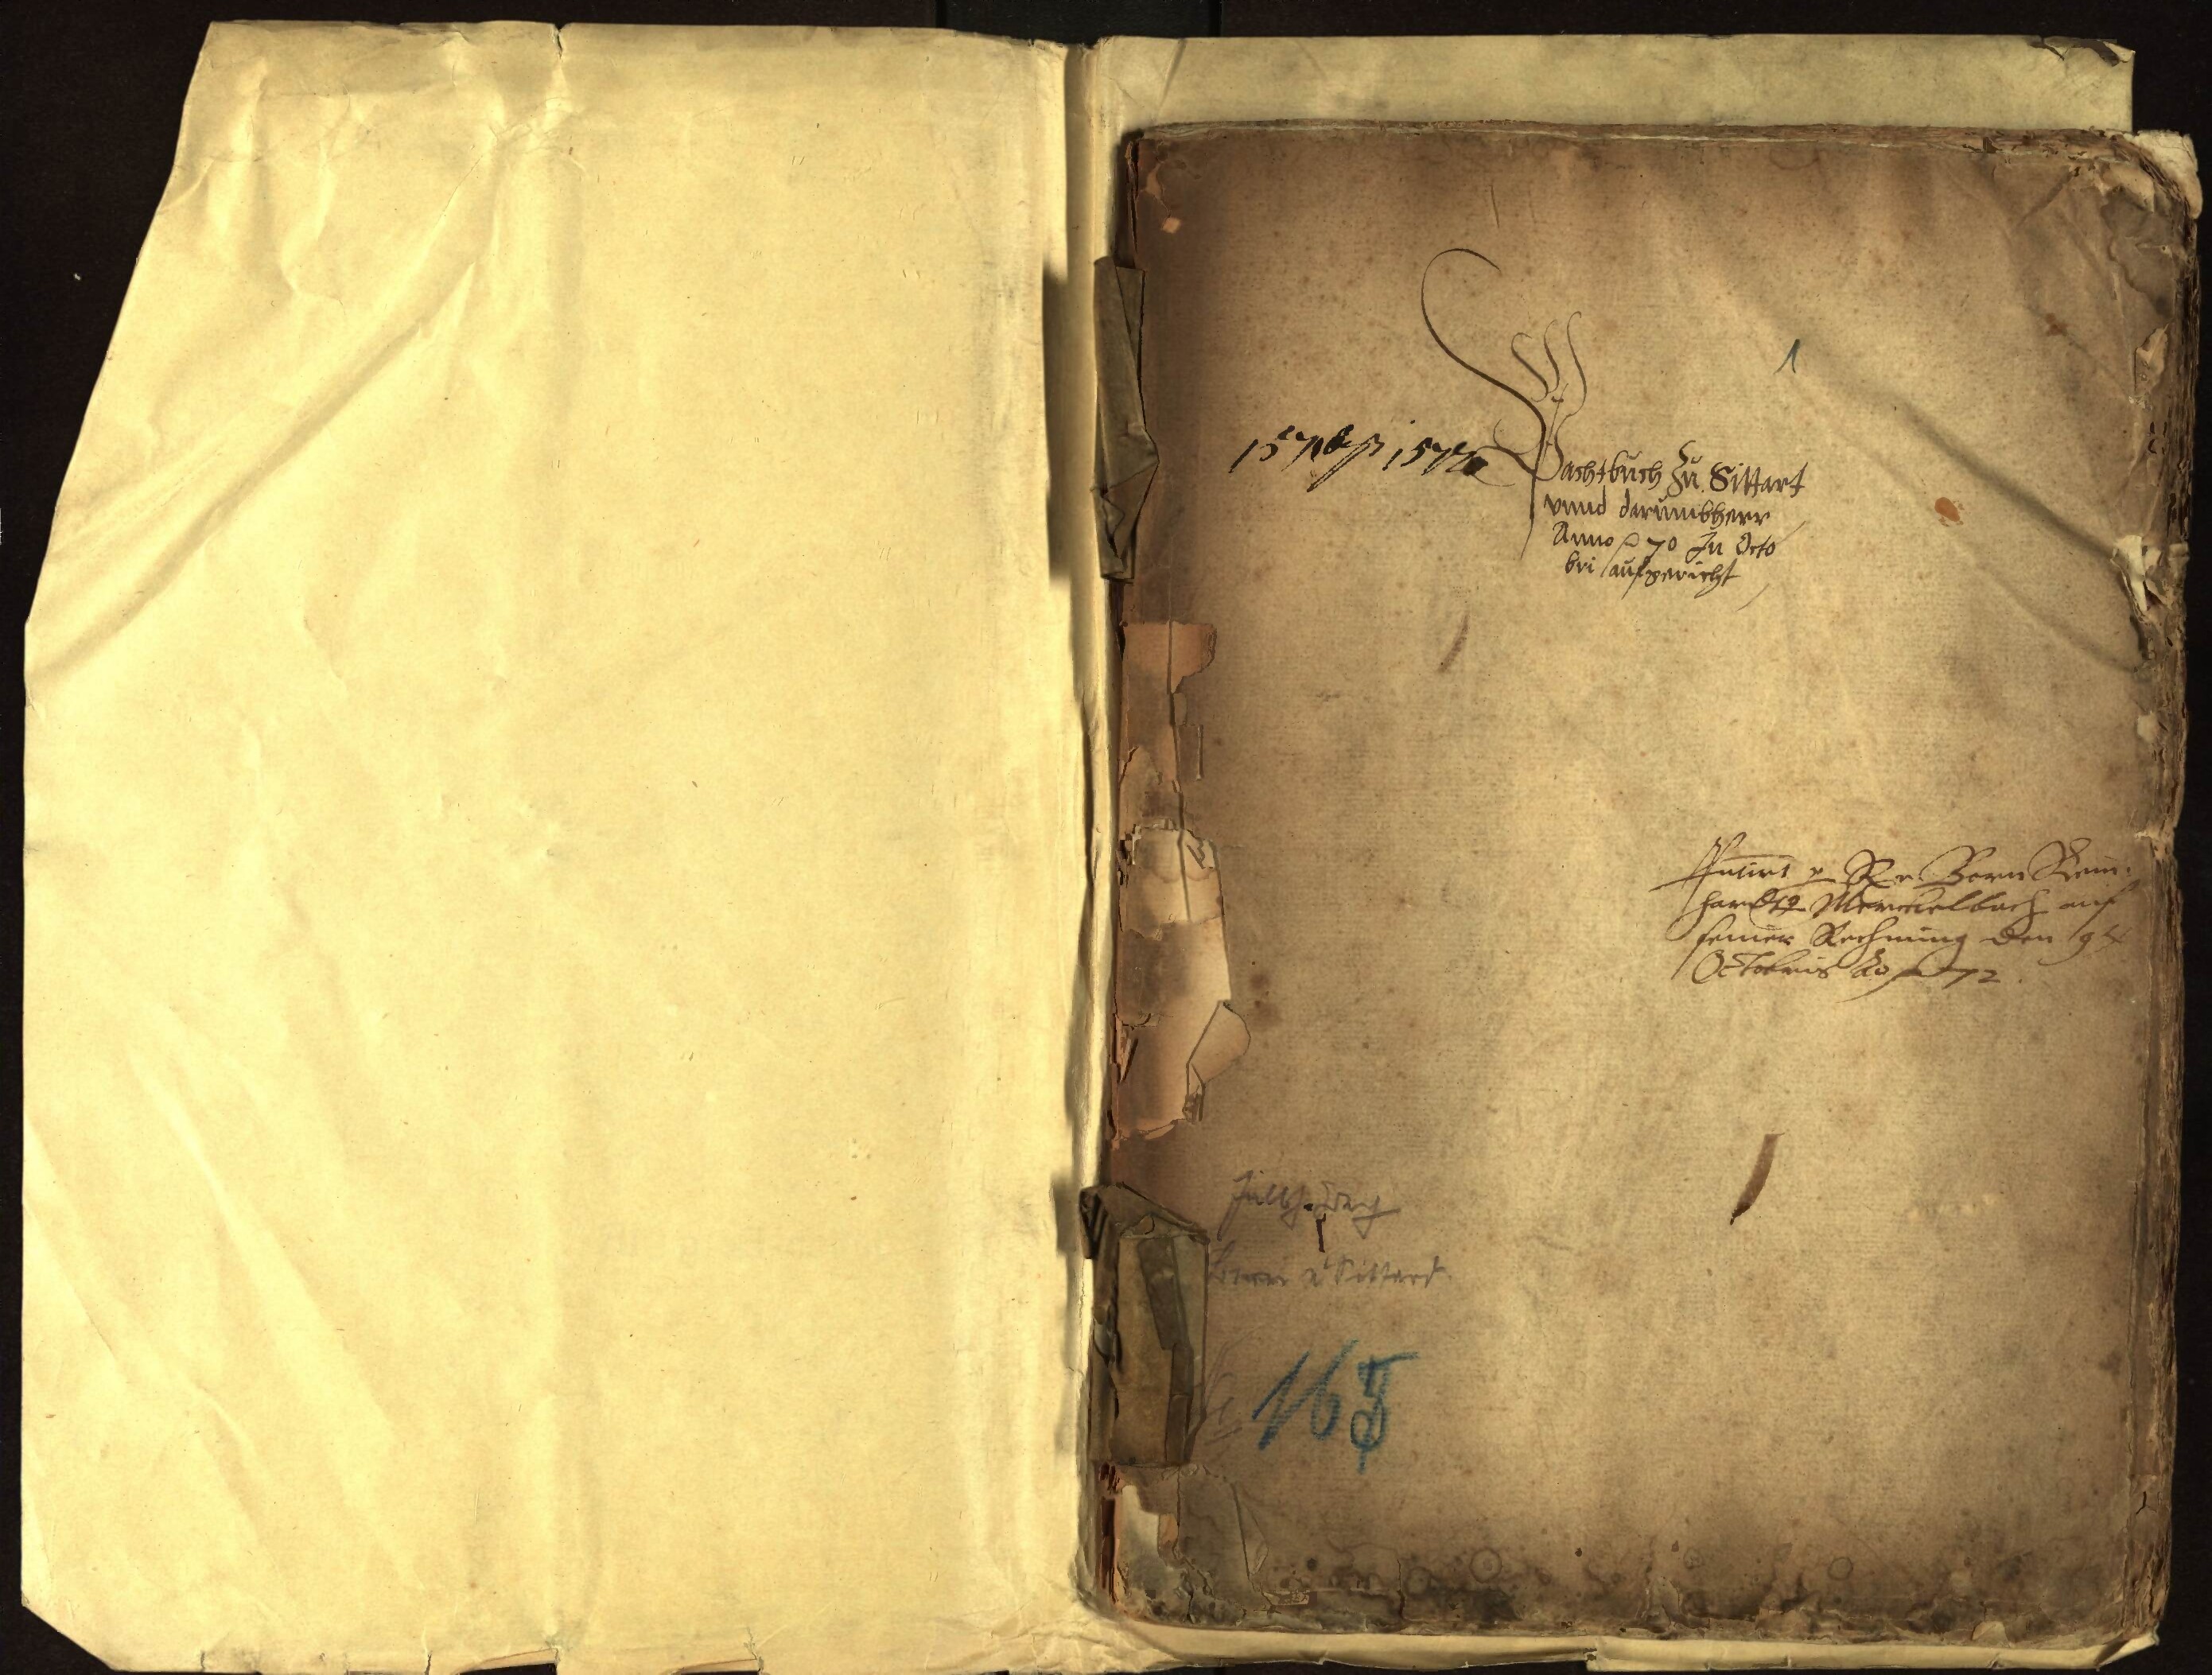 1
1570 biß 1571
Pachtbuch Zu Sittart
vnnd darumbherr
Anno p 70 Jn Octo
bri aufgericht
p Bern Rein
hardt Merckelbach auf
seiner Rechnung den 9
Octobris Ao 72.
Jülich-Berg
I
Sittard
165